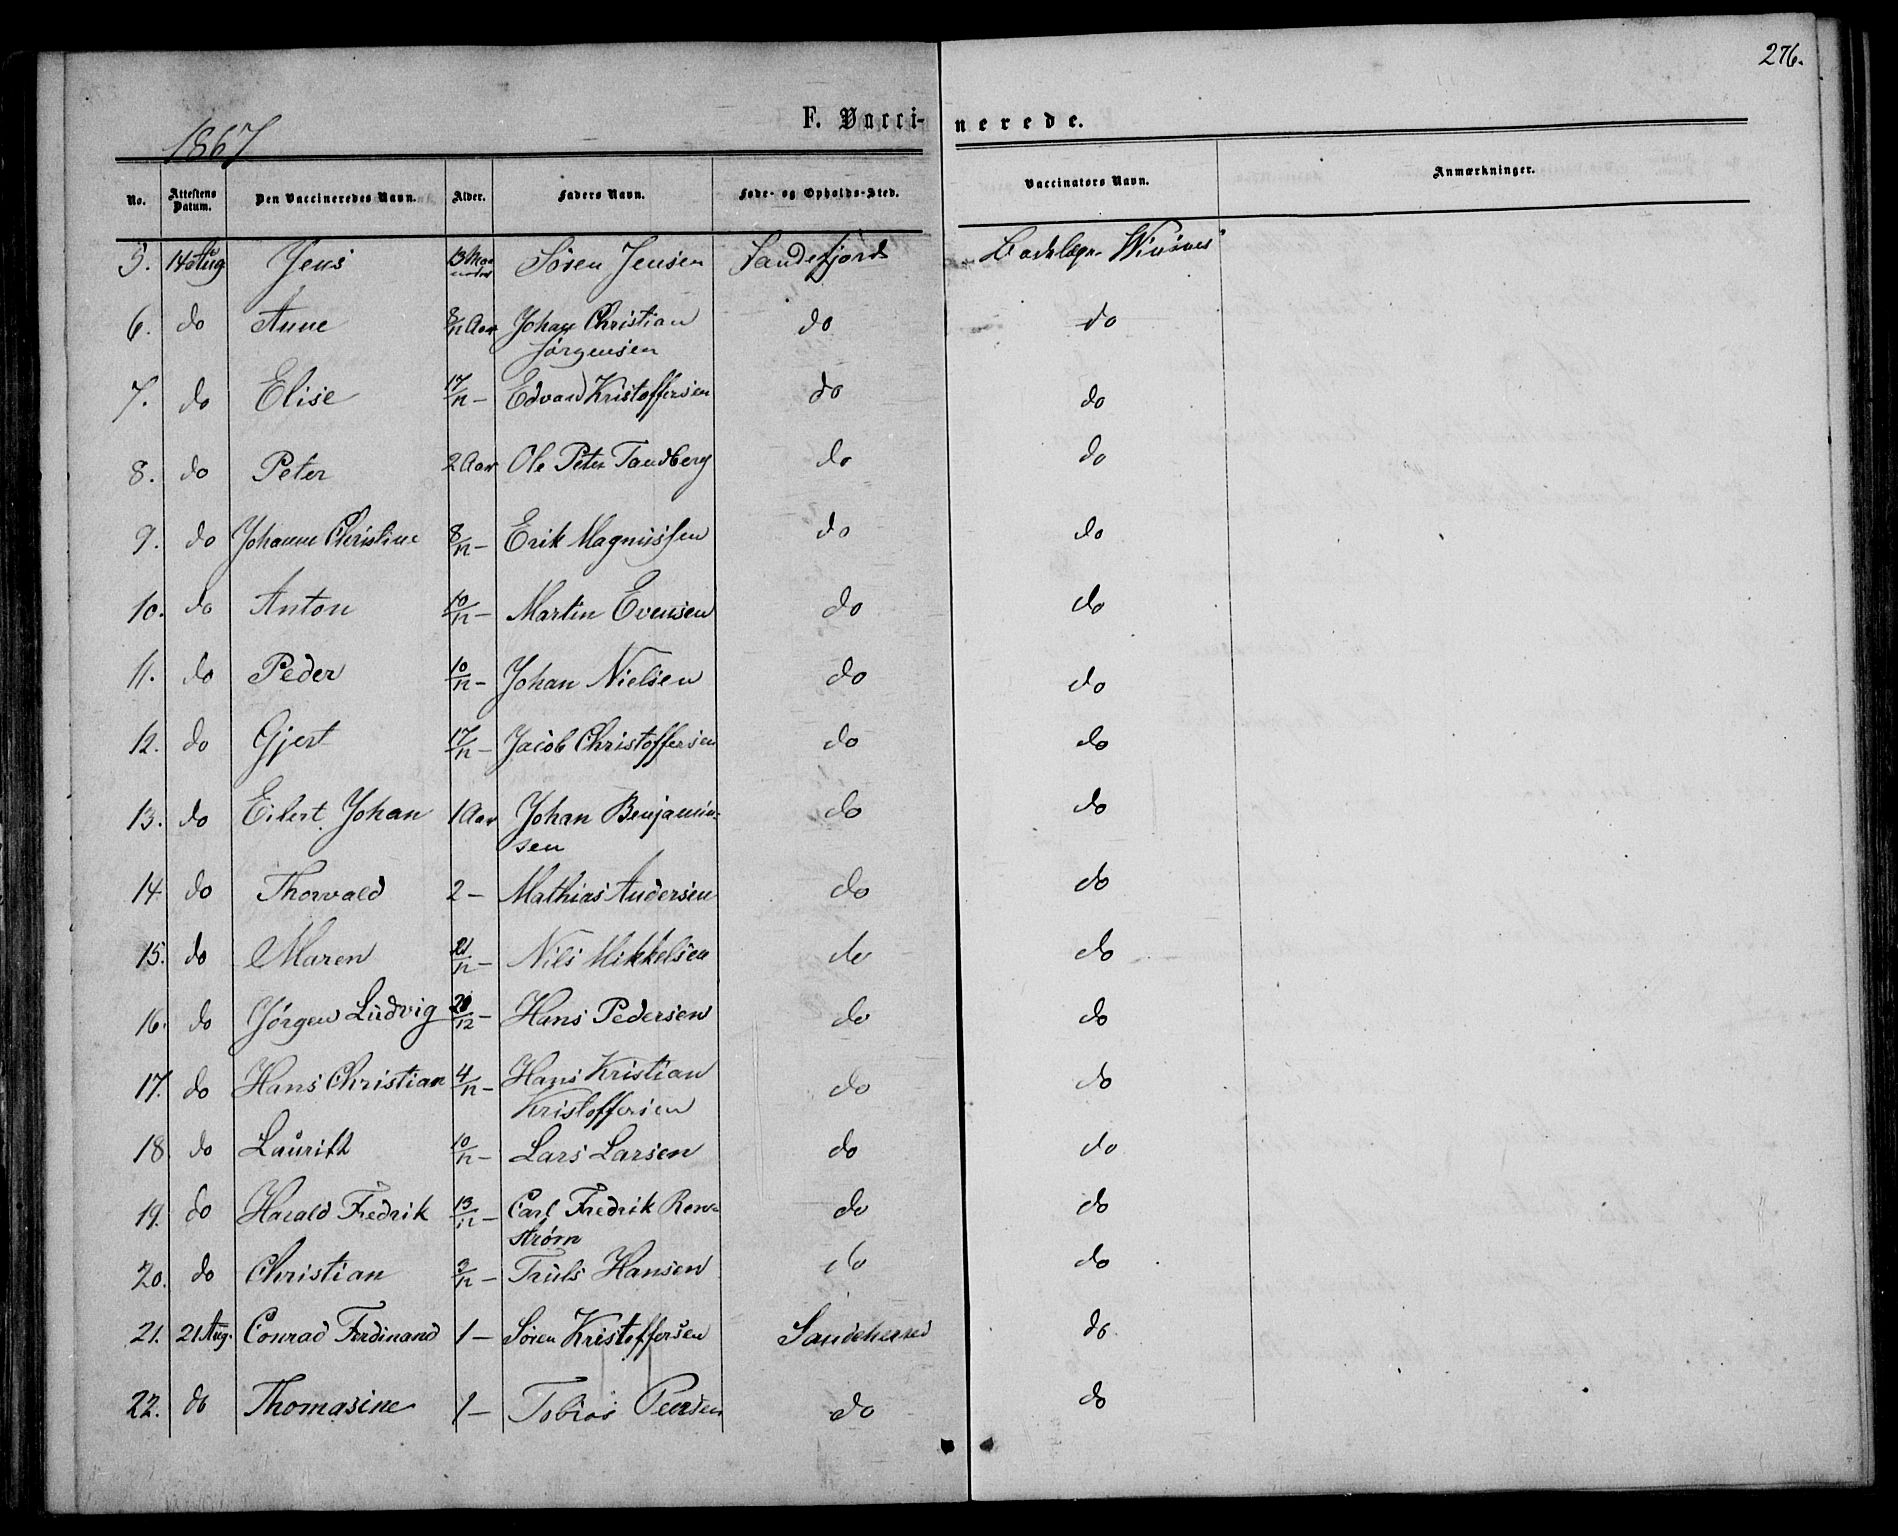 276.
1867
F. Vacci- nerede.
No. Attestens Datum. Den Vaccineredes Navn. Alder. Faders Navn. Føde- og Opholds-Sted. Vaccinators Navn. Anmærkninger.
5. 14 Aug Jens 13 Maaneder Søren Jensen Sandefjord
6. do Anne 8/12 Aar Johan Christian Jørgensen do do
7. do Elise 17/12 – Edvard Kristoffersen do do
8. do Peter 2 Aar Ole Peter Tandberg do do
9. do Johanne Christine 8/12 – Erik Magnussen do do
10. do Anton 10/12 – Martin Evensen do do
11. do Peder 10/12 – Johan Nielsen do do
12. do Gjert 17/12 – Jacob Christoffersen do do
13. do Eilert Johan 1 Aar Johan Benjamin-
sen do do
14 do Thorvald 2 – Mathias Andersen do do
15. do Maren 21/12 – Nils Mikkelsen do do
16. do Jørgen Ludvig 20/12 – Hans Pedersen do do
17. do Hans Christian 4/12 – Hans Kristian Kristoffersen do do
18 do Lauritz 10/12 – Lars Larsen do do
19. do Harald Fredrik 13/12 – Carl Fredrik Ren-
strøm do do
20. do Christian 3/12 – Truls Hansen do do
21. 21 Aug. Conrad Ferdinand 1 – Søren Kristoffersen Sandeherred do
22. do Thomasine 1 – Tobias do do